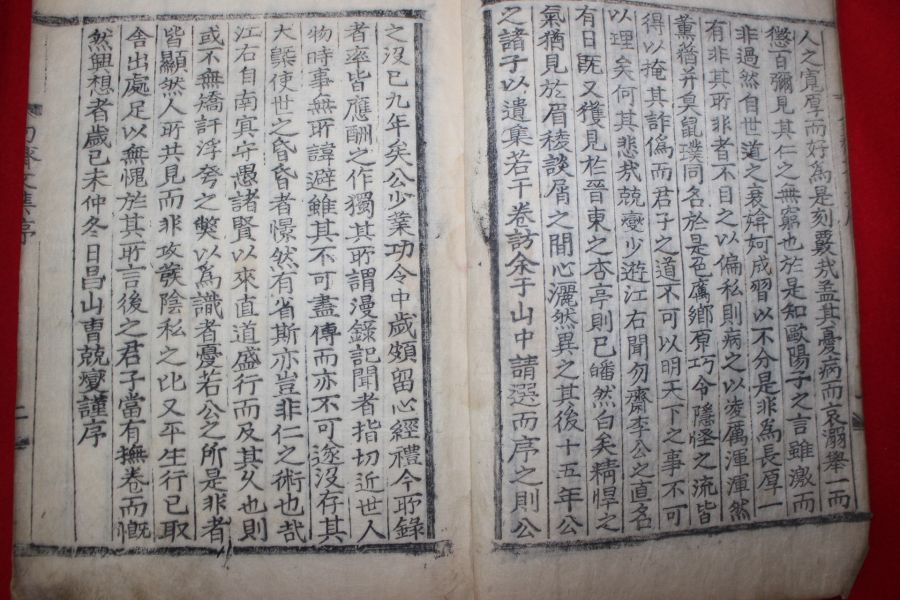 人之寬厚而好爲是刻覈哉盖其憂病而哀溺擧一而
懲百彌見其仁之無窮也於是知歐陽子之言雖激而
非過然自世道之衰媕妸成習以不分是非爲長厚一
有非其所非者不目之以偏私則病之以凌厲渾渾然
薰蕕并臭鼠璞同名於是色厲鄕原巧令隱怪之流皆
得以掩其詐僞而君子之道不可以明天下之事不可
以理矣何其悲哉兢燮少遊江右聞勿齋李公之直名
有日旣又獲見於晉東之杏亭則已皤然白矣精悍之
氣猶見於眉稜談屑之間心灑然異之其後十五年公
之諸子以遺集若干卷訪余于山中請選而序之則公
之沒已九年矣公少業功令中歲頗留心經禮今所錄
者率皆應酬之作獨其所謂漫錄記聞者指切近世人
物時事無所諱避雖其不可盡傳而亦不可遂沒存其
大槩使世之昏昏者憬然有省斯亦豈非仁之術也哉
江右自南冥守愚諸賢以來直道盛行而及其久也則
或不無矯訐浮夸之弊以爲識者憂若公之所是非者
皆顯然人所共見而非攻發陰私之比又平生行已取
舍出處足以無愧於其所言後之君子當有撫卷而慨
然興想者歲己未仲冬日昌山曺兢燮謹序
二